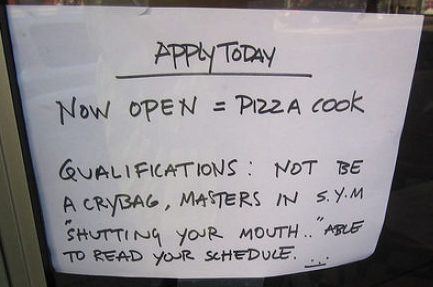 APPLY TODAY
NOW OPEN = PIZZA COOK
QUALIFICATIONS: NOT BE
A CRYBAG, MASTERS IN S.Y.M
"SHUTTING YOUR MOUTH.." ABLE
TO READ YOUR SCHEDULE.